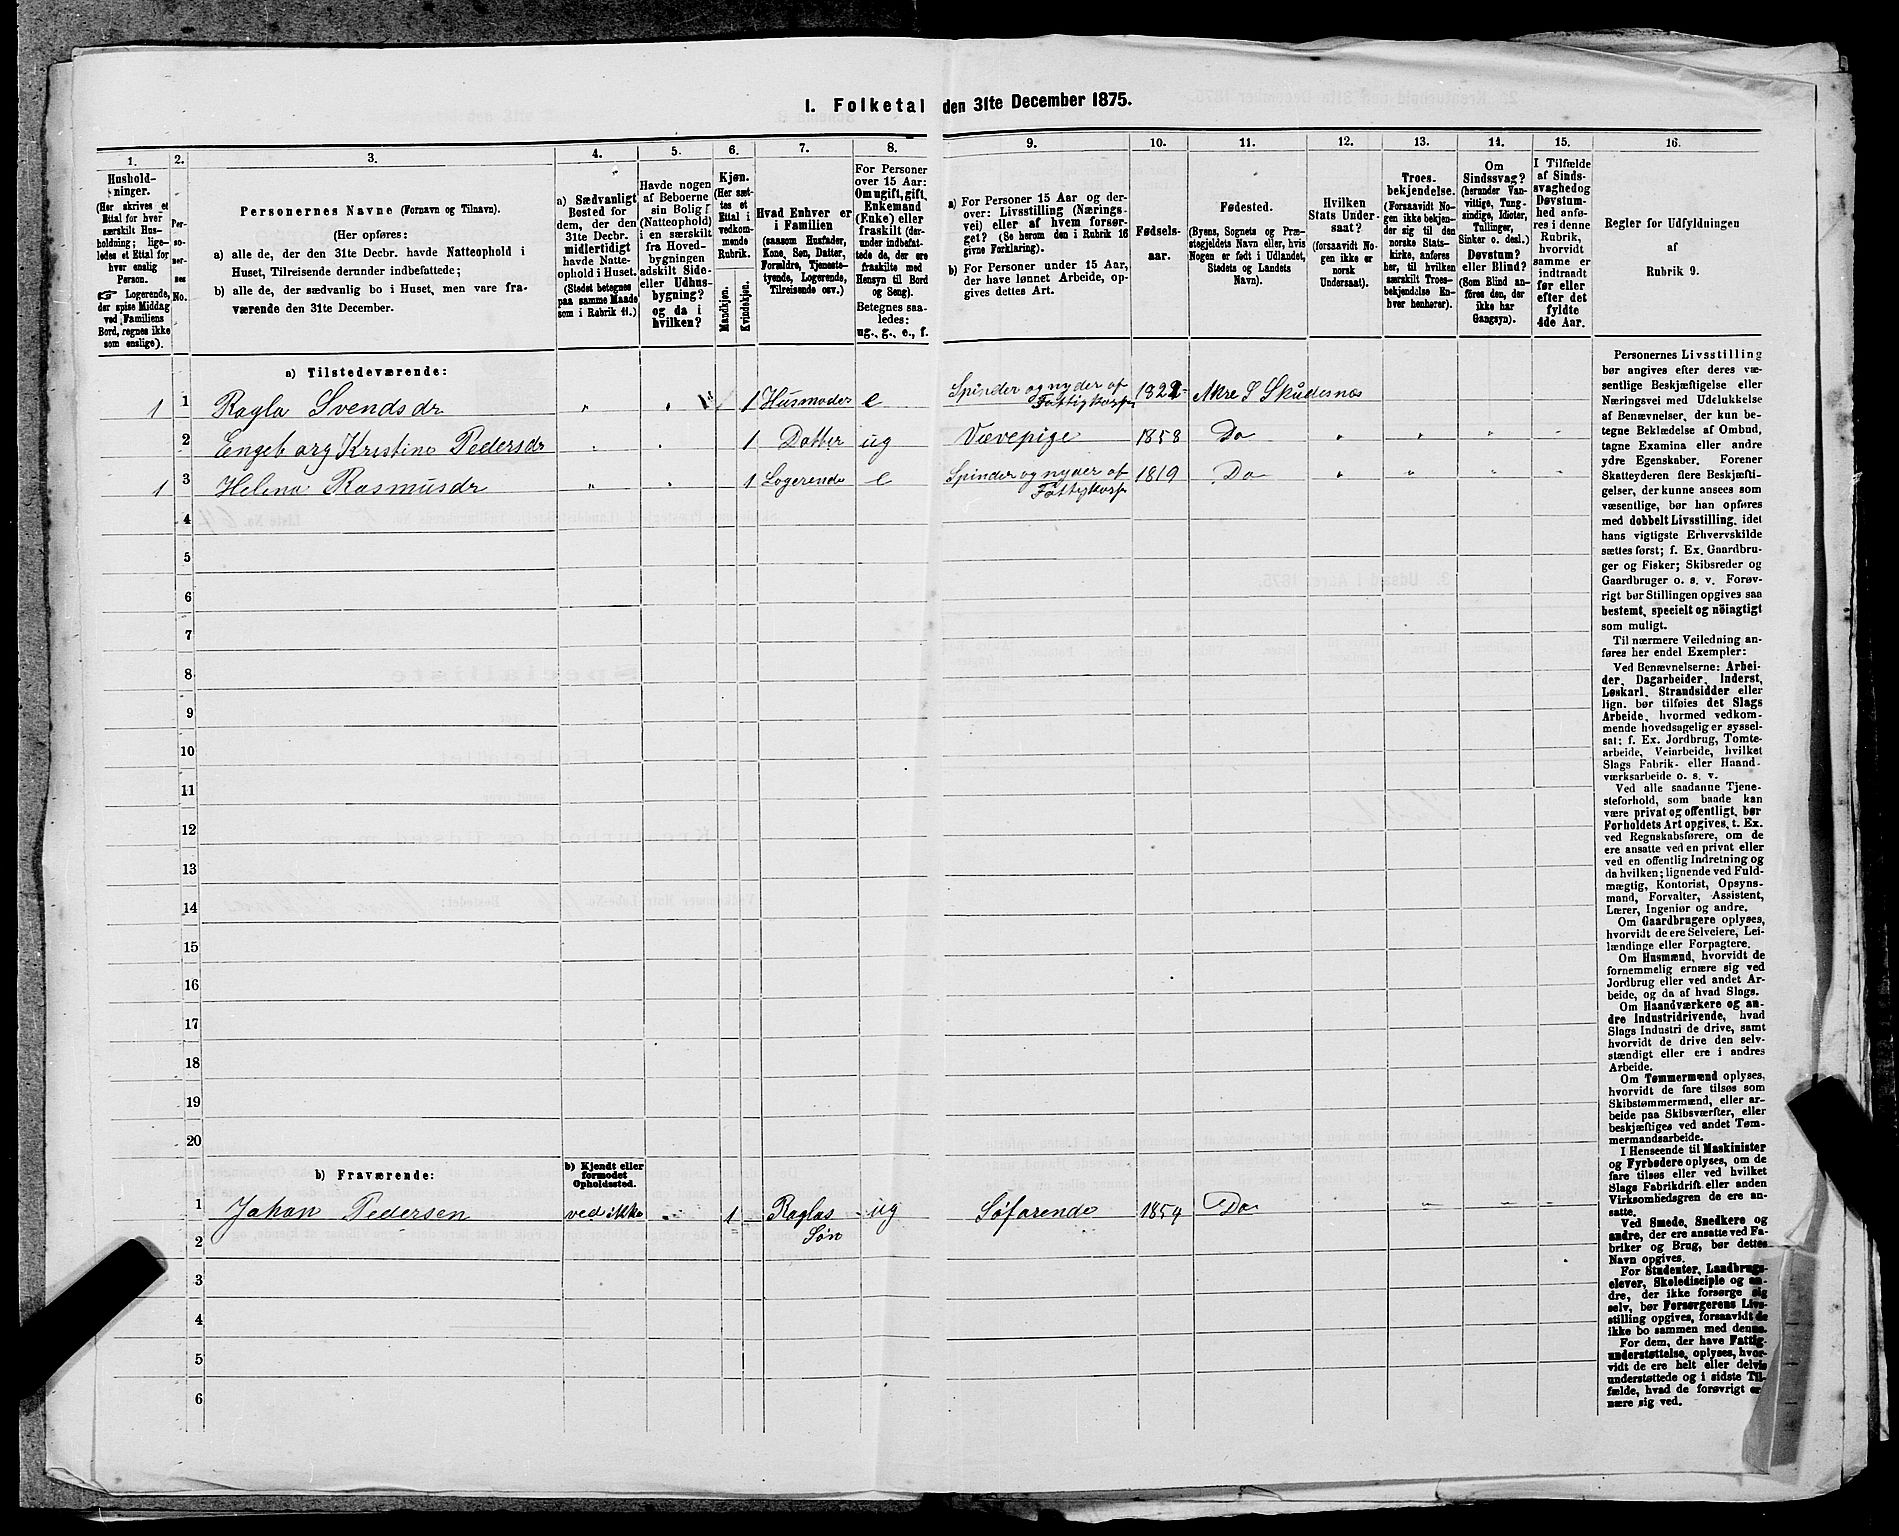 I. Folketal den 31te December 1875.
1. 2. 3. 4. 5. 6. 7. 8. 9. 10. 11. 12. 13. 14. 15. 16.
Hushold-
ninger.
(Her skrives et
Ettal for hver
særskilt Hus-
holdning; lige-
ledes et Ettal for
hver enslig
Person.
☞ Logerende,
der spise Middag
ved Familiens
Bord, regnes ikke
som enslige).
Per-
so-
ner-
nes
No.
Personernes Navne (Fornavn og Tilnavn).
(Her opføres:
a) alle de, der den 31te Decbr. havde Natteophold i
Huset, Tilreisende derunder indbefattede;
b) alle de, der sædvanlig bo i Huset, men vare fra-
værende den 31te December.
a) Sædvanligt
Bosted for
dem, der den
31te Decbr.
midlertidigt
havde Natte-
ophold i Huset.
(Stedet betegnes
paa samme Maade
som i Rubrik 11.)
Havde nogen
af Beboerne
sin Bolig
(Natteophold)
i en særskilt
fra Hoved-
bygningen
adskilt Side-
eller Udhus-
bygning?
og da i
hvilken?
Kjøn.
(Her sæt-
tes et
Ettal i
vedkom-
mende
Rubrik.
Mandkjøn.
Kvindekjøn.
Hvad Enhver er
i Familien
(saasom Husfader,
Kone, Søn, Datter,
Forældre, Tjeneste-
tyende, Logerende,
Tilreisende osv.)
For Personer
over 15 Aar:
Om ugift, gift,
Enkemand
(Enke) eller
fraskilt (der-
under indbefat-
tede de, der ere
fraskilte med
Hensyn til Bord
og Seng).
Betegnes saa-
ledes:
ug., g., e., f.
a) For Personer 15 Aar og der-
over: Livsstilling (Nærings-
vei) eller af hvem forsør-
get? (Se herom den i Rubrik 16
givne Forklaring).
b) For Personer under 15 Aar,
der have lønnet Arbeide, op-
gives dettes Art.
Fødsels-
aar.
Fødested.
(Byens, Sognets og Præ-
stegjeldets Navn eller, hvis
Nogen er født i Udlandet,
Stedets og Landets
Navn).
Hvilken
Stats Under-
saat?
(forsaavidt No-
gen ikke er
norsk
Undersaat).
Troes-
bekjendelse.
(Forsaavidt No-
gen ikke bekjen-
der sig til den
norske Stats-
kirke, anføres
her, til hvilken
særskilt Troes-
bekjendelse En-
hver henhører).
Om
Sindssvag?
(herunder Van-
vittige, Tung-
sindige, Idioter,
Tullinger,
Sinker o. desl.)
Døvstum?
eller Blind?
(Som Blind an-
føres den, der
ikke har
Gangsyn).
I Tilfælde
af Sinds-
svaghed og
Døvstum-
hed anfø-
res i denne
Rubrik,
hvorvidt
samme er
indtraadt
før eller
efter det
fyldte
4de Aar.
Regler for Udfyldningen
af
Rubrik 9.
a) Tilstedeværende:
1 1 Ragla Svendsdr " " 1 Husmoder e Spinder og nyder af Fattigkasse 1821 Akre S Skudesnæs
2 Engeborg Kristine Pedersdr " " 1 Datter ug Vævepige 1858 Do " " " "
1 3 Helena Rasmusdr " " 1 Logerende e Spinder og nyder af Fattigkasse 1819 Do " " " "
4
5
6
7
8
9
10
11
12
13
14
15
16
17
18
19
20
b) Fraværende:
b) Kjendt eller
formodet
Opholdssted.
1 Johan Pedersen ved ikke " 1 Raglas Søn ug Søfarende 1854 Do
2
3
4
5
6
Personernes Livsstilling
bør angives efter deres væ-
sentlige Beskjæftigelse eller
Næringsvei med Udelukkelse
af Benævnelser, der kun be-
tegne Beklædelse af Ombud,
tagne Examina eller andre
ydre Egenskaber. Forener
Skatteyderen flere Beskjæfti-
gelser, der kunne ansees som
væsentlige, bør han opføres
med dobbelt Livsstilling, idet
hans vigtigste Erhvervskilde
sættes først; f. Ex. Gaardbru-
ger og Fisker; Skibsreder og
Gaardbruger o. s. v. Forøv-
rigt bør Stillingen opgives saa
bestemt, specielt og nöiagtigt
som muligt.
Til nærmere Veiledning an-
føres her endel Exempler:
Ved Benævnelserne: Arbei-
der, Dagarbeider, Inderst,
Løskarl, Strandsidder eller
lign. bør tilføies det Slags
Arbeide, hvormed vedkom-
mende hovedsagelig er syssel-
sat; f. Ex. Jordbrug, Tomte-
arbeide, Veiarbeide, hvilket
Slags Fabrik- eller Haand-
værksarbeide o. s. v.
Ved alle saadanne Tjene-
steforhold, som baade kan
være privat og offentligt, bør
Forholdets Art opgives, t. Ex.
ved Regnskabsførere, om de
ere ansatte ved en privat eller
ved en offentlig Indretning og
da hvilken; lignende ved Fuld-
mægtig, Kontorist, Opsyns-
mand, Forvalter, Assistent,
Lærer, Ingeniør og andre.
Om Gaardbrugere oplyses,
hvorvidt de ere Selveiere, Lei-
lændinge eller Forpagtere.
Om Husmænd, hvorvidt de
fornemmelig ernære sig ved
Jordbrug eller ved andet Ar-
beide, og da af hvad Slags.
Om Haandværkere og an-
dre Industridrivende, hvad
Slags Industri de drive, samt
hvorvidt de drive den selv-
stændigt eller ere i andres
Arbeide.
Om Tømmermænd oplyses,
hvorvidt de fare tilsøs som
Skibstømmermænd, eller ar-
beide paa Skibsværfter, eller
beskjæftiges ved andet Tøm-
mermandsarbeide.
I Henseende til Maskinister
og Fyrbødere oplyses, om de
fare tilsøs eller ved hvilket
Slags Fabrikdrift eller anden
Virksomhedsgren de ere an-
satte.
Ved Smede, Snedkere og
andre, der ere ansatte ved Fa-
briker og Brug, bør dettes
Navn opgives.
For Studenter, Landbrugs-
elever, Skoledisciple og an-
dre, der ikke forsørge sig
selv, bør Forsørgerens Livs-
stilling opgives, forsaavidt de
ikke bo sammen med denne.
For dem, der have Fattig-
understøttelse, oplyses, hvor-
vidt de ere helt eller delvis
understøttede og i sidste Til-
fælde, hvad de forøvrigt er-
nære sig ved.